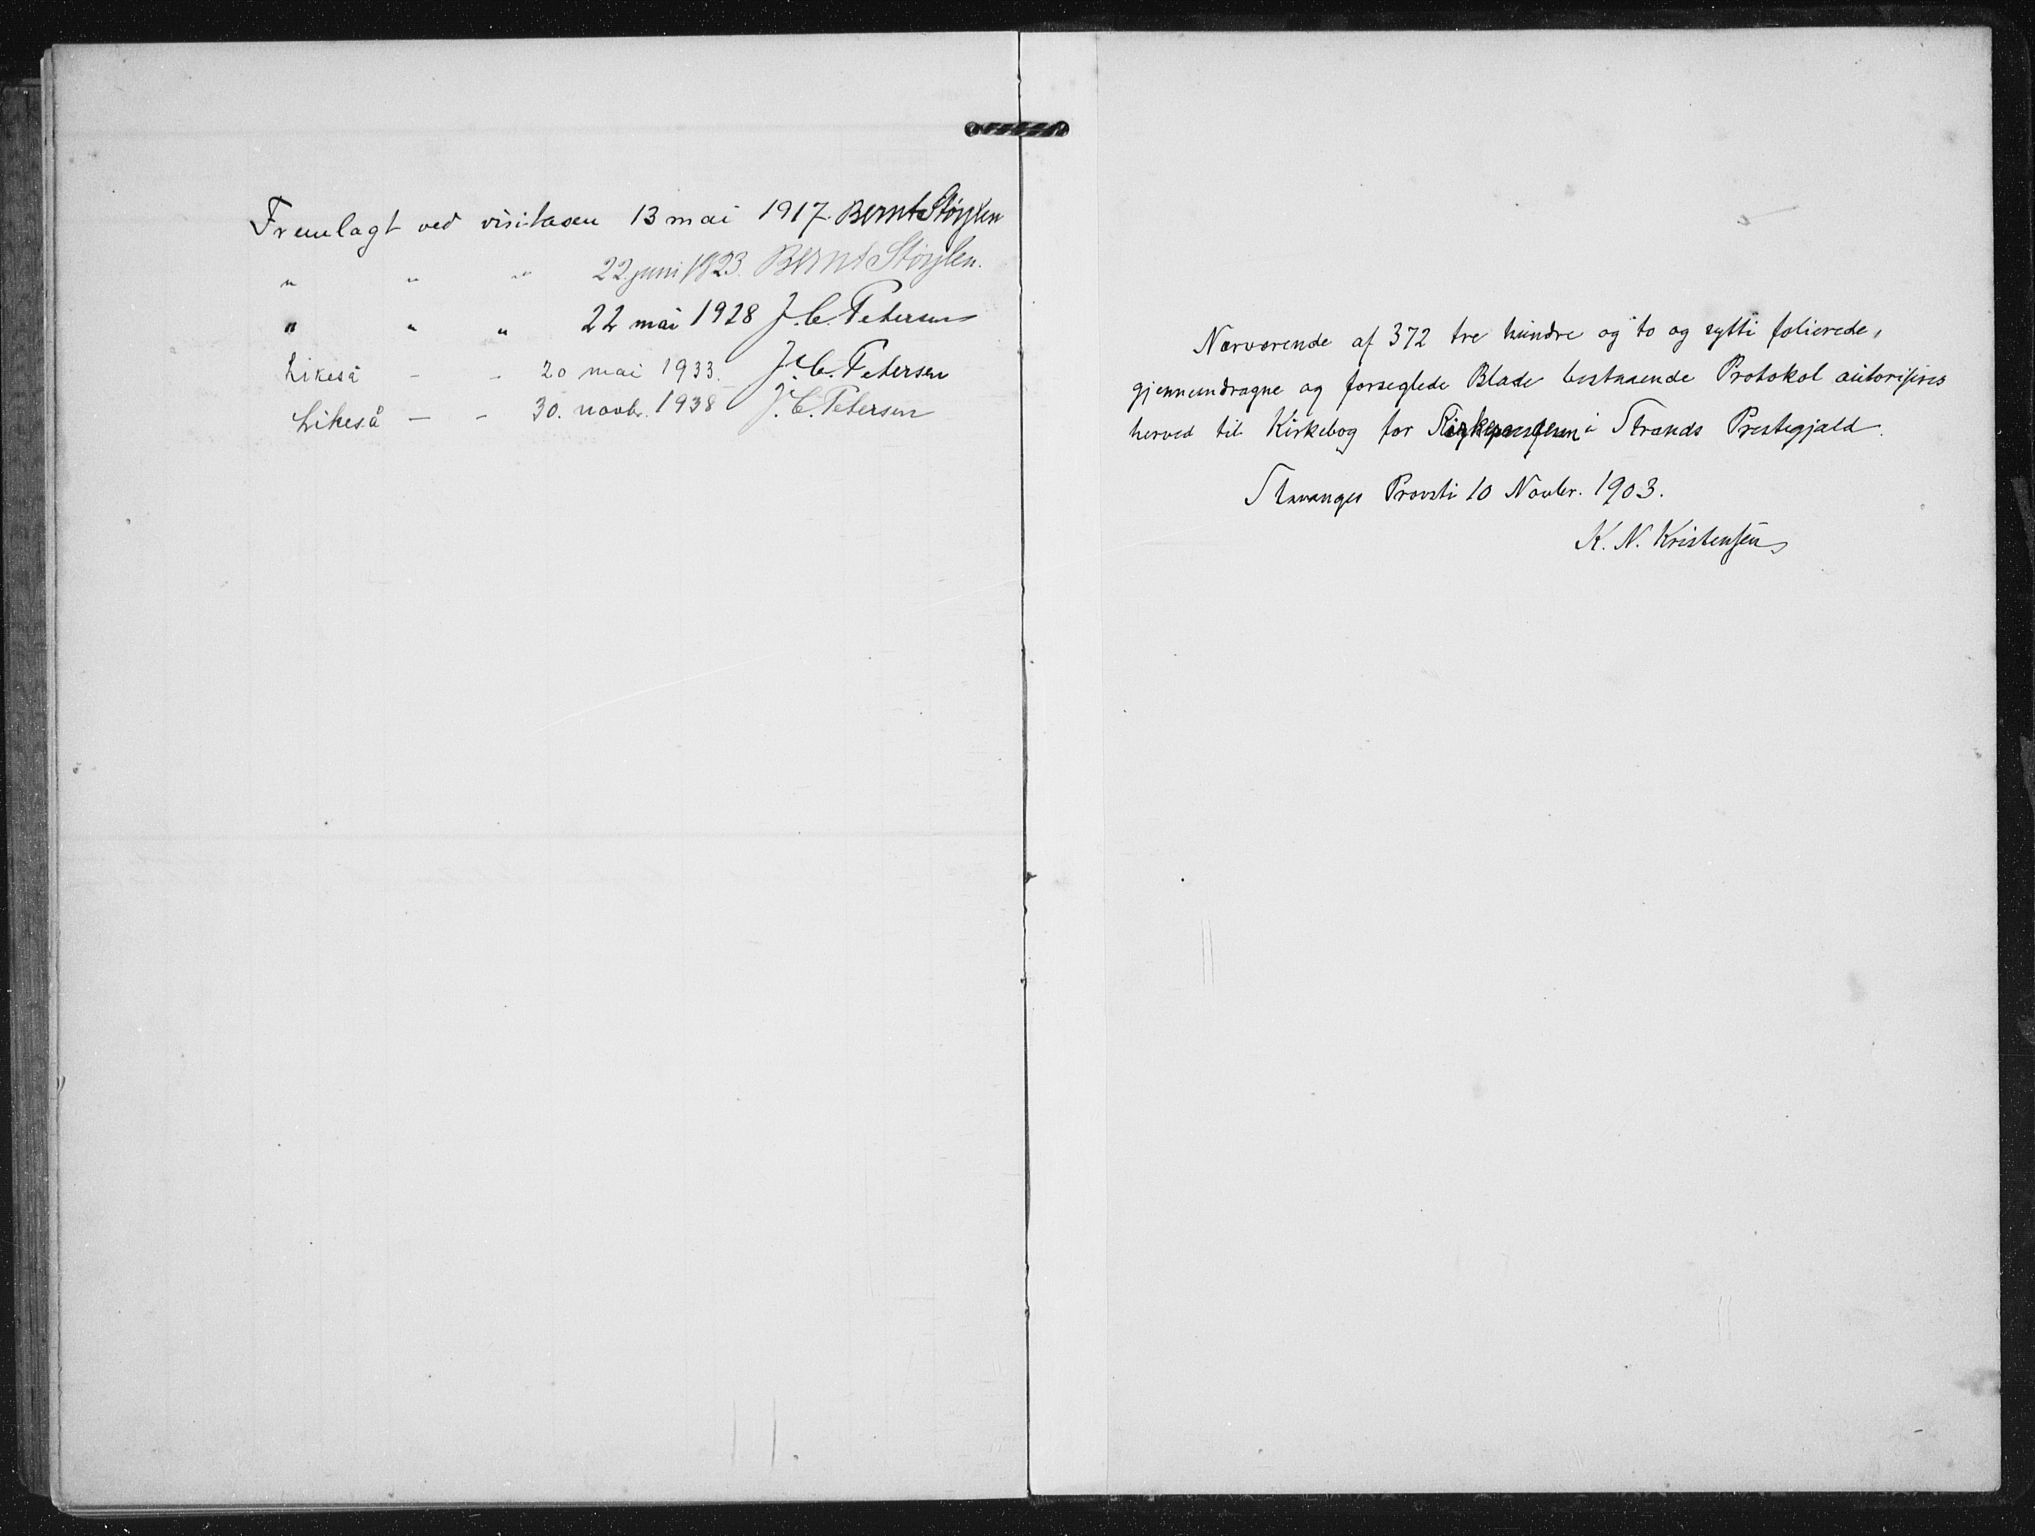 Fremlagt ved visitasen 13 mai 1917. Bernt Støylen
" " " 22 juni 1923. Bernt Støylen.
" " " 22 mai 1928 J. C. Petersen
Likeså - - 20 mai 1933. J. C. Petersen
Likeså - - 30. novbr. 1938 J. C. Petersen
Nærværende af 372 tre hundre og to og sytti folierede,
gjennemdragne og forseglede Blade bestaaende Protokol autorisires
herved til Kirkebog for i Strands Prestegjæld.
Stavanger Provsti 10 Novbr. 1903.
K. N. Kristensen